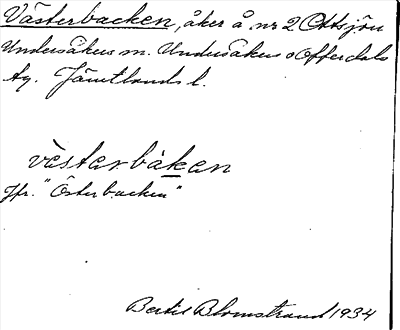 Västerbacken, åker å nr 2 Ottsjön
Undersåkers sn. Undersåkers o Offerdals
tg. Jämtlands l.
västarbàkan
Jfr. "Österbacken"
Bertil Blomstrand 1934